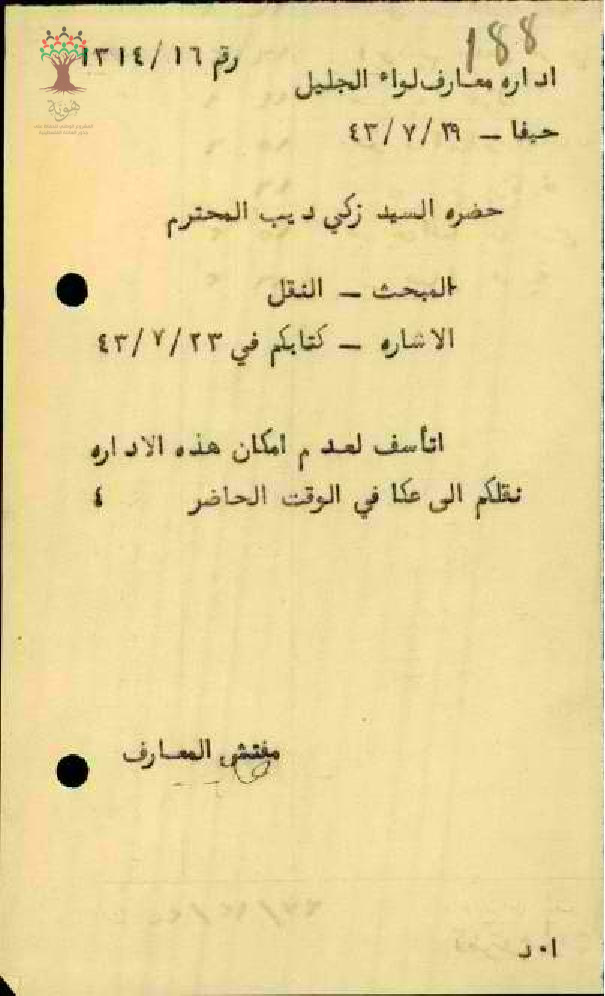 188
رقم ١٣١٤/١٦
اداره معارف لواء الجليل
حيفا – ٤٣/٧/٢٩
هوية
حضره السيد زكي ديب المحترم
المبحث – النقل
الاشاره – كتابكم في ٤٣/٧/٢٣
اتأسف لعدم امكان هذه الاداره
نقلكم الى عكا في الوقت الحاضر ٤
مفتش المعارف
ا٠د